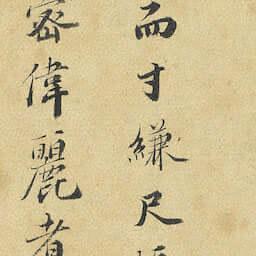 而寸縑尺
密偉麗者